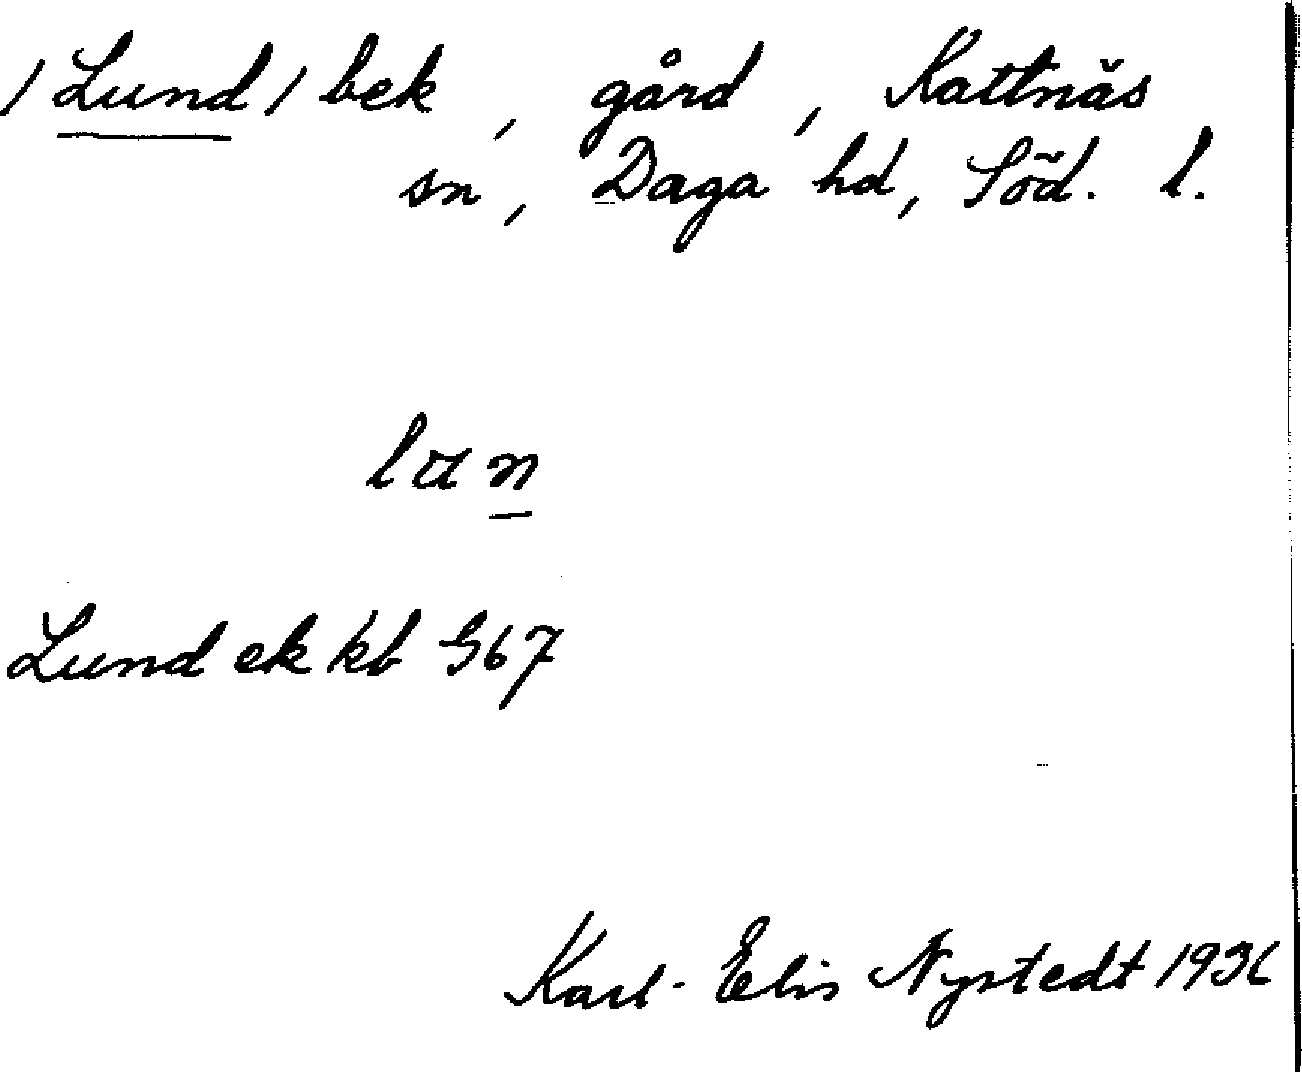 /Lund/bek, gård, Kattnäs
sn, Daga hd, Söd. l.
lan
Lund ek kb G67
Karl-Elis Nystedt 1936